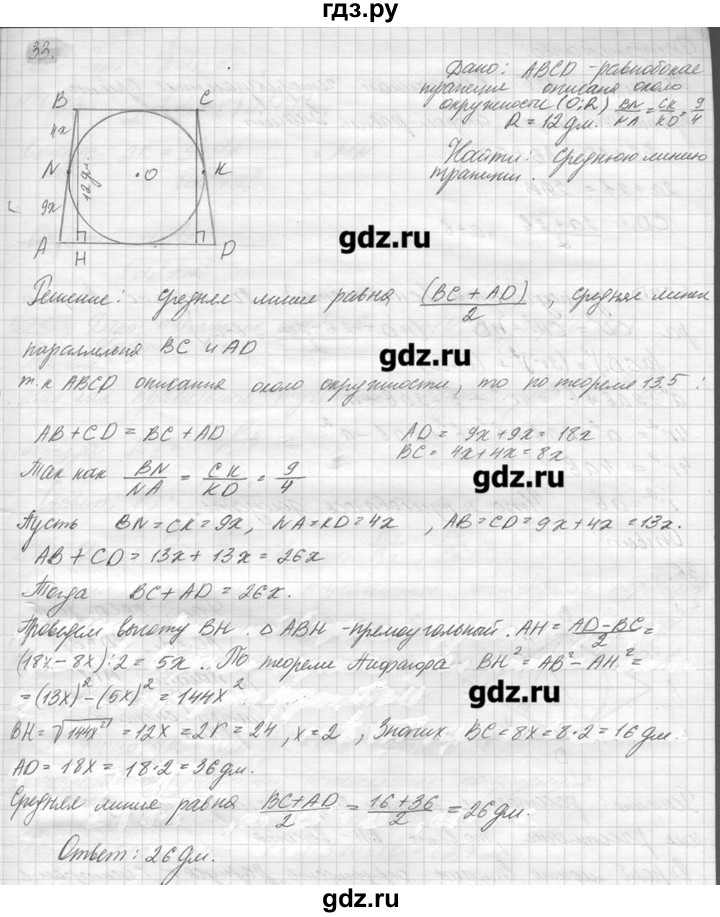 гдз.ру
33.
Дано: ABCD - равнобокая
трапеция описана около
окружности (O;R) BN/NA = CK/KD = 9/4
R = 12 дм.
Найти: Среднюю линию
трапеции.
B C
4x
N 12 дм. O K
9x
A H D
gdz.ru
Решение: Средняя линия равна (BC + AD)/2, средняя линия
параллельна BC и AD
gdz.ru
т.к ABCD описанная около окружности, то по теореме 13.5:
AB + CD = BC + AD AD = 9x + 9x = 18x
BC = 4x + 4x = 8x
Так как BN/NA = CK/KD = 9/4
gdz.ru
Пусть BN = CK = 9x, NA = KD = 4x, AB = CD = 9x + 4x = 13x.
AB + CD = 13x + 13x = 26x
Тогда BC + AD = 26x.
Проведем высоту BH. △ ABH - прямоугольный. AH = (AD - BC)/2 =
(18x - 8x):2 = 5x. По теореме Пифагора BH² = AB² - AH² =
= (13x)² - (5x)² = 144x²
gdz.ru
BH = √144x² = 12x = 2r = 24, x = 2, Значит BC = 8x = 8·2 = 16 дм.
AD = 18x = 18·2 = 36 дм.
Средняя линия равна (BC + AD)/2 = (16 + 36)/2 = 26 дм.
gdz.ru
Ответ: 26 дм.
gdz.ru